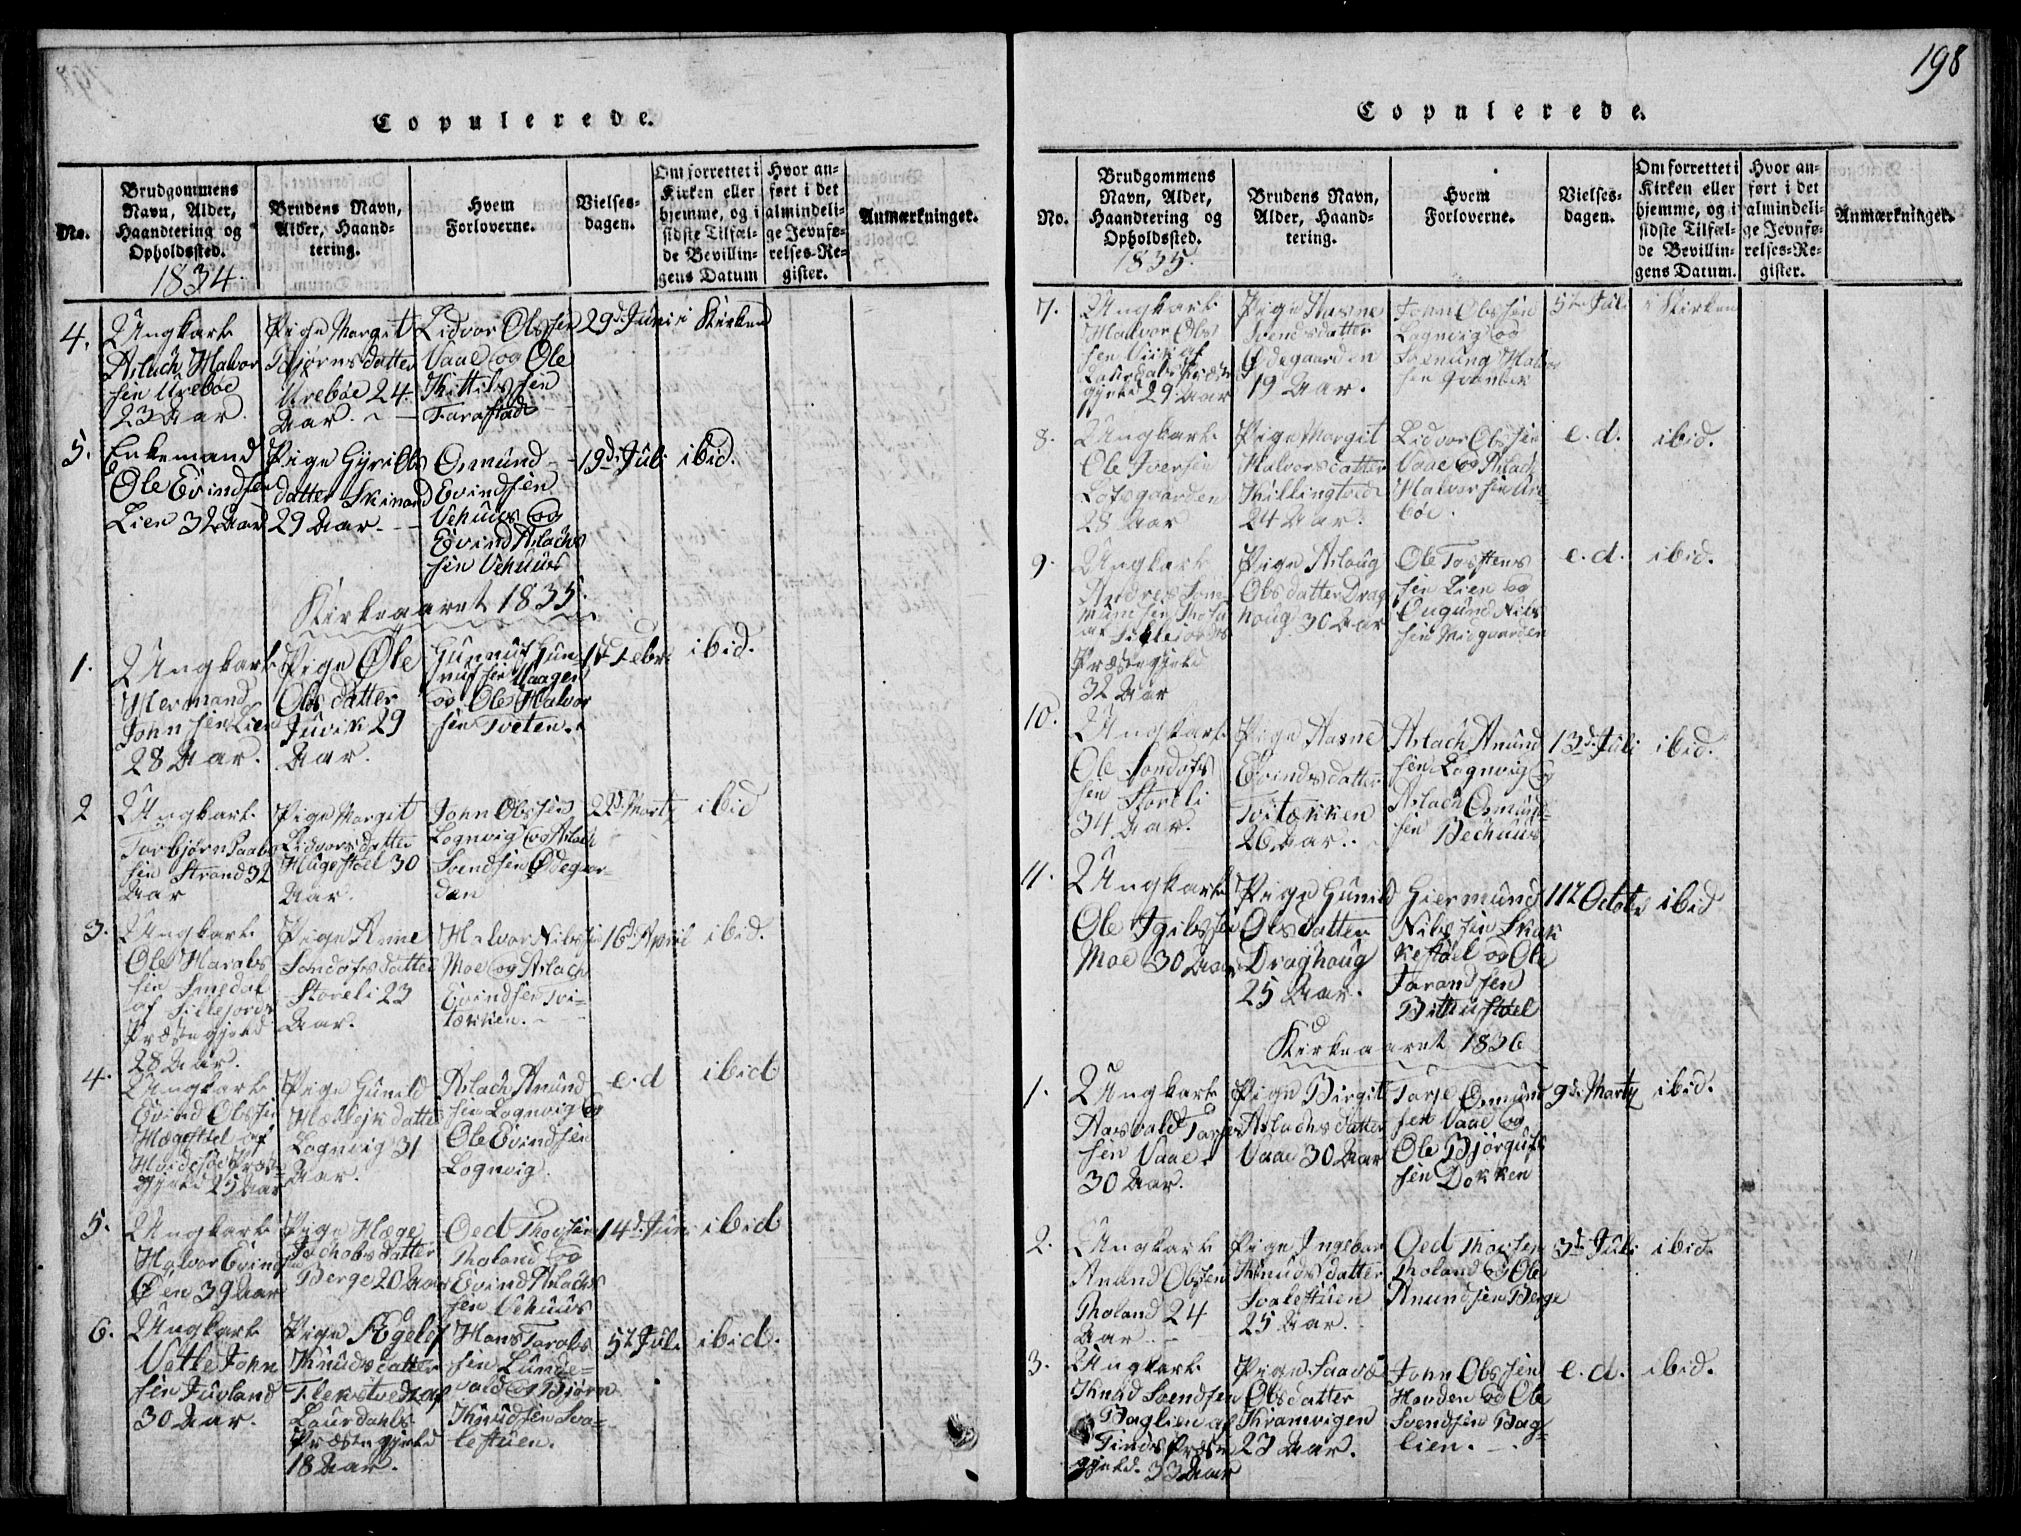 198
Copulerede.
No.
Brudgommens
Navn, Alder,
Haandtering og
Opholdssted.
1834.
Brudens Navn,
Alder, Haand-
tering.
Hvem
Forloverne.
Vielses-
dagen.
Om forrettet i
Kirken eller
hjemme, og i
sidste Tilfæl-
de Bevillin-
gens Datum
Hvor an-
ført i det
almindeli-
ge Jevnfø-
relses-Re-
gister.
Anmærkninger.
4.
Ungkarl
Aslach Halvor
sen Urebøe
23 Aar.
Pige Margit
Torbjørnsdatter
Urebøe 24
Aar.
Lidvor Olssen
Vaae og Ole
Kittilssen
Farastad
29d Juni
i Kirken
5.
Enkemand
Ole Evindsen
Lien 32 Aar
Pige Gyri Ols
datter Skinard
29 Aar.
Osmund
Evindsen
Vehuus og
Evind Aslachs
sen Vehuus
19d Juli
ibid.
Kirkeaaret 1835.
1.
Ungkarl
Hermand
Johnsen Lien
28 Aar.
Pige Ole
Olsdatter
Juvik 29
Aar.
Gunnuf Gun
nufsen Haagen
og Ole Halvor
sen Tveten.
1st Febr.
ibid.
2
Ungkarl
Torbjørn Saabe
sen Strand 32
Aar
Pige Margit
Lidvorsdatter
Hugestøel 30
Aar.
John Olssen
Lognvig og Aslach
Svendsen Ødegaar-
den
22d Marty
ibid
3.
Ungkarl
Ole Harals
sen Smedal
af Sillejords
Præstegjeld
28 Aar.
Pige Anne
Sondofsdatter
Storeli 23
Aar.
Halvor Nilssen
Moe og Aslach
Evindsen Tvi-
tækken.
16d April
ibid.
4.
Ungkarl
Evind Olssen
af
Hvidesøe Præste
gjeld 25 Aar
Pige Gunild
Hælleiksdatter
Lognvig 31
Aar.
Aslach Anund
sen Lognvig og
Ole Evindsen
Lognvig.
e.d
ibid
5.
Ungkarl
Halvor Evindsen
Øen 39 Aar
Pige Hæge
Jachobsdatter
Berge 20 Aar
Oed Thovsen
Tholand og
Evind Aslachs
sen Vehuus
14d Juni
ibid
6.
Ungkarl
Vetle John
sen Juvland
30 Aar.
Pige
Knudsdatter
Flekstvedt af
Laurdahls
Præstegjeld
18 Aar.
Hans Tarals
sen Lunde-
vald og Bjørn
Knudsen Sva-
lestuen.
5t Juli
ibid.
Copulerede.
No.
Brudgommens
Navn, Alder,
Haandtering og
Opholdssted.
1835.
Brudens Navn,
Alder, Haand-
tering.
Hvem
Forloverne.
Vielses-
dagen.
Om forrettet i
Kirken eller
hjemme, og i
sidste Tilfæl-
de Bevillin-
gens Datum.
Hvor an-
ført i det
almindeli-
ge Jevnfø-
relses-Re-
gister.
Anmærkninger.
7.
Ungkarl
Halvor Ols
sen Viik af
Laurdals Præste
gjeld 29 Aar
Pige Aasne
Svendsdatter
Ødegaarden
19 Aar.
John Olssen
Lognvig og
Halvor
sen
5te Juli
i Kirken
8.
Ungkarl
Ole Iversen
Loftsgaarden
28 Aar
Pige Margit
Halvorsdatter
Killingtvedt
24 Aar.
Lidvor Olssen
Vaae og Aslach
Halvorsen Ure
bøe.
e.d.
ibid.
9.
Ungkarl
Andres
af Sillejords
Præstegjeld
32 Aar
Pige Aslaug
Olsdatter Drag
houg 30 Aar
Ole Torstens
sen Lien og
Ougund Nils
sen Midgaarden
e.d.
ibid.
10.
Ungkarl
Ole Sondofs
sen Storeli
34 Aar.
Pige Aasne
Evindsdatter
Tvitækken
26 Aar.
Aslach Anund
sen Lognvig og
Aslach Osmund-
sen Bechuus
13d Juli
ibid.
11.
Ungkarl
Ole Igilssen
Moe 30 Aar
Pige Gunild
Olsdatter
Draghoug
25 Aar.
Giermund
Nilssen Skak
kestøel og Ole
Tarandsen
Bittustøel
11t October
ibid
Kirkeaaret 1836
1.
Ungkarl
Aasvald Tarje
sen Vaae
30 Aar.
Pige Birgit
Aslachsdatter
Vaae 30 Aar
Tarje Osmund
sen Vaae og
Ole Bjørgufs
sen Dokken
9d Marty
ibid.
2.
Ungkarl
Anund Olssen
Tholand 24
Aar.
Pige Ingebor
Knudsdatter
Svalestuen
25 Aar.
Oed Thovsen
Tholand og Ole
Anundsen Berge
3d Juli
ibid.
3.
Ungkarl
Knud Svendsen
Baglien af
Tinds Præste
gjeld. 33 Aar
Pige Saave
Olsdatter
Kramvigen
23 Aar.
John Olssen
Hovden og Ole
Svendsen Bag-
lien.
e.d.
ibid.